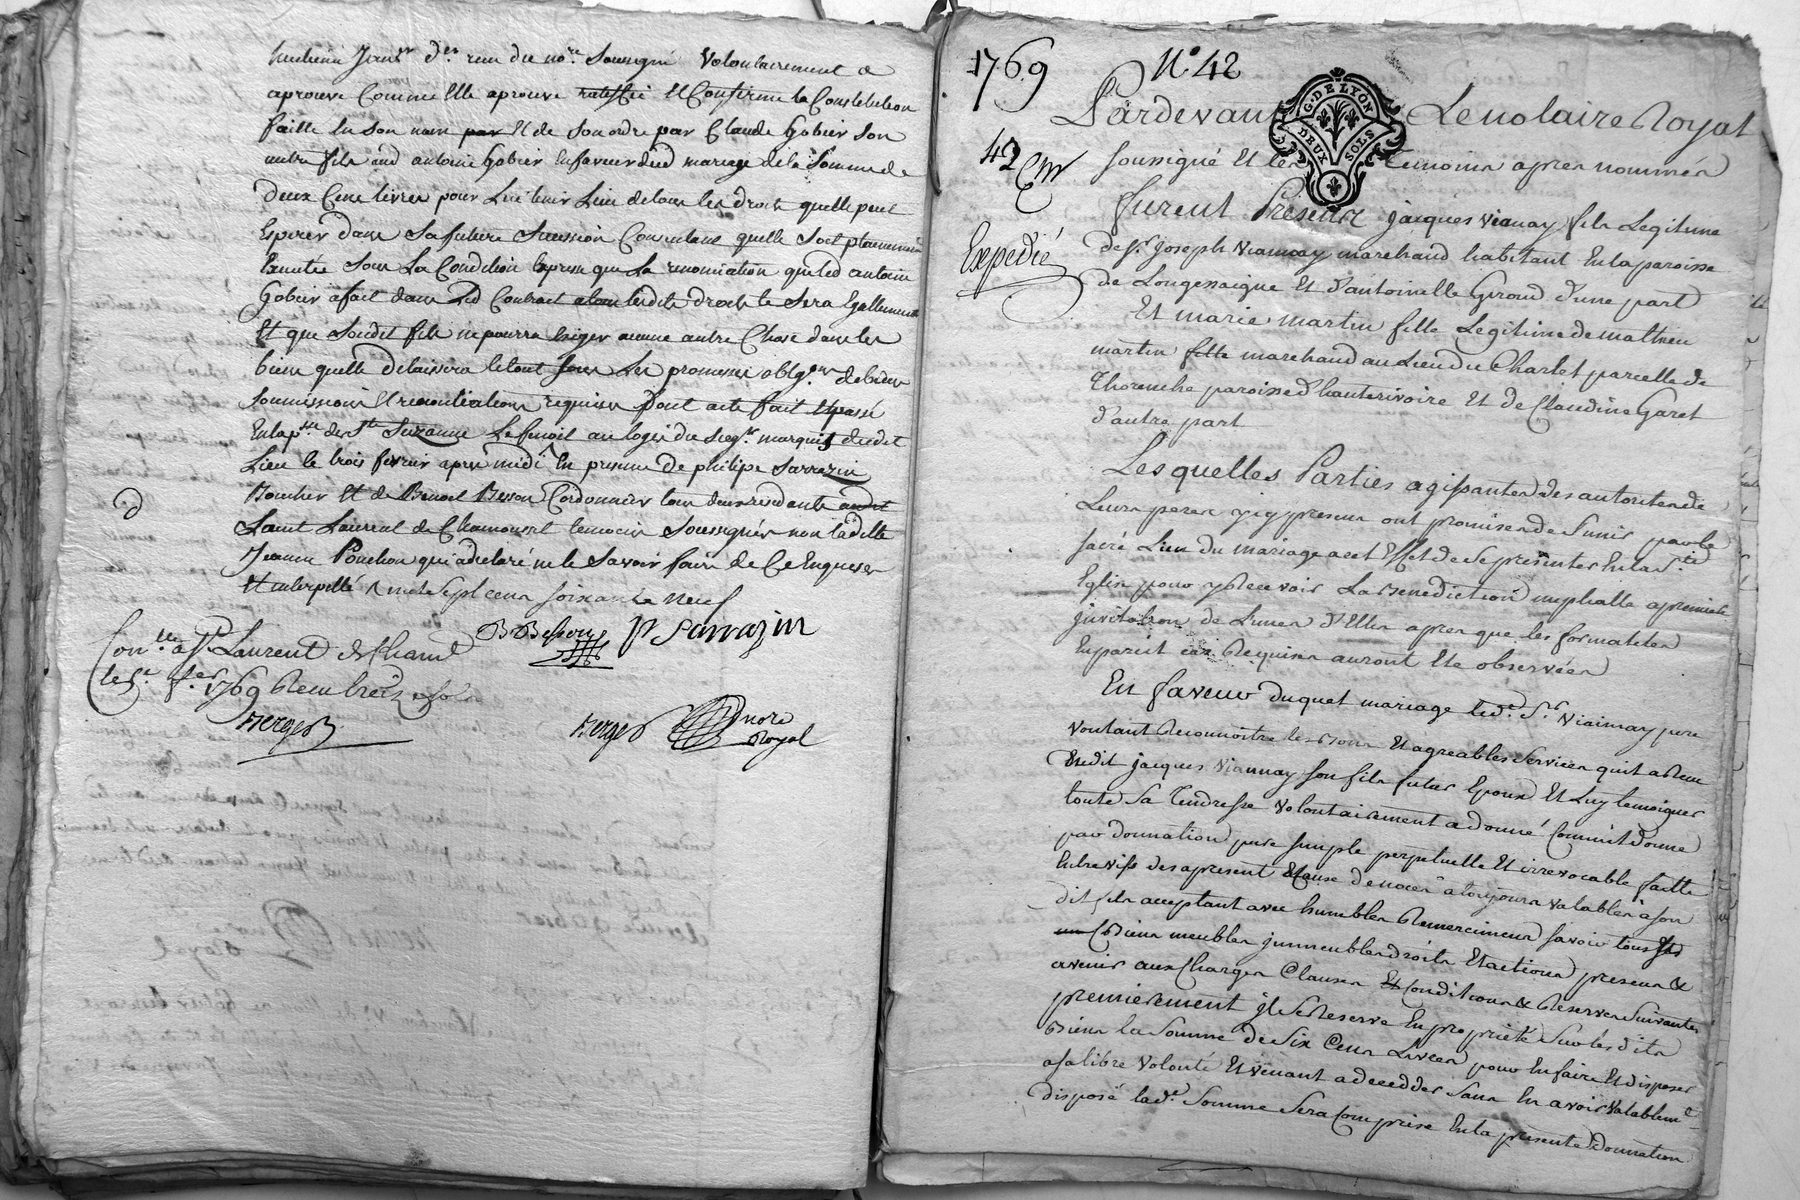 receu du no.re Soussigné Volontairement a
aprouvé Comme Elle aprouve ratiffie Et Confirme la Constitution
faitte En Son nom par Et de Son ordre par Claude Gobier Son
autre fils aud antoine Gobier En faveur dud mariage de la Somme de
deux Cens livres pour Luy tenir Lieu de tous les droits quelle peut
Esperer dans Sa future Sucession Consentant quelle Soit
Sous La Condition Expresse que La renonciation que led antoine
Gobier a fait dans Led Contrat a tous lesdits droits te Sera Egallement
Et que Sondit fils ne pourra Exiger aucune autre Chose dans les
biens quelle delaissera le tout Sous Les promesses oblig.ons de biens
Soumissions Et renonciations requises dont acte fait Et passé
En la p.sse de S.te Suzanne Le au logis du Seig.r marquis dudit
Lieu le trois fevrier apres midi En presence de philipe Sarrazin
Boucher Et de Benoit Besson Cordonnier tous deux residants audit
Saint Laurent de Chamousset temoins Soussignés non ladite
Jeanne Ponchon qui a declaré ne le Savoir faire de Ce Enquise
Et interpellé mil Sept cens Soixante neuf
BBesson P Sarrazin
Con.lle a S.t Laurent de Cham.t
le 5.e f.er 1769 Receu treize sols
Berger
Berger nore
Royal
1769
N.o 42
G. DE LYON
DEUX SOLS
Pardevant Le notaire Royal
42
soussigné Et les temoins apres nommés
Expedié
furent Presents jacques viannay fils Legitime
de S.r joseph Viannay marchand habitant En la paroisse
de Longessaigne Et d'antoinette Giroud d'une part
Et marie martin fille Legitime de mathieu
martin fille marchand au Lieu du Charlet parcelle de
Thorenche paroisse d'hauterivoire Et de Claudine Garet
d'autre part
Lesquelles Parties agissantes des autorites de
Leurs peres icy presens ont promises de S'unir par le
sacré Lien du mariage a cet Effet de Se presenter En la S.te
Eglise pour y Recevoir La Benediction nuptialle a premiere
jnvitation de L'une D'Elles apres que les formalites
En pareil cas Requises auront Eté observées
En faveur duquel mariage led.t S.r Viannay pere
voulant Reconnoitre les Bons Et agreables Services quil a Receu
dudit jacques Viannay Son fils futur Epoux Et Luy temoigner
toute Sa Tendresse Volontairement a donné Comme il donne
par donnation pure simple perpetuelle Et irrevocable faitte
Entre vifs des a present Et Cause de noces a toujours valables a Son
dit fils acceptant avec humbles Remerciments savoir tous Ses
Biens meubles jmmeubles droits Et actions presens &
avenir aux Charges Clauses Et Conditions & Reserves Suivantes
premierement jl Se Reserve En propriété Sur les dits
Biens la Somme de Six Cens Livres pour En faire Et disposer
a Sa libre volonté Et venant a deceder Sans En avoir valablem.t
disposé lad.e Somme Sera Comprise En la presente Donnation